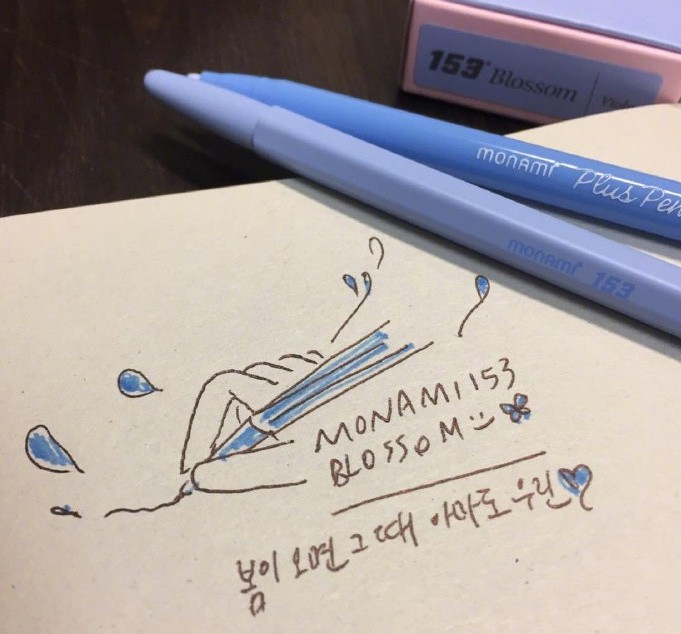 153 Blossom
monami Plus Pen
monami 153
MONAMI 153
BLOSSOM
봄이 오면 그때 아마도 우린